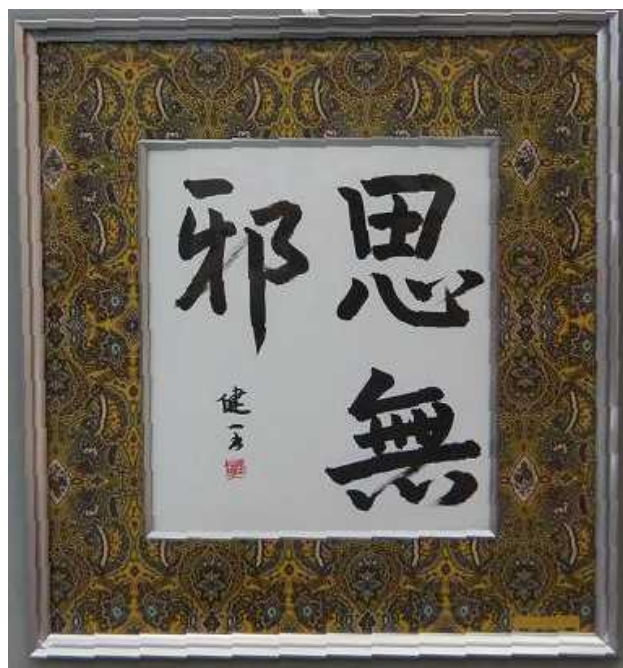 思無
邪
健一書